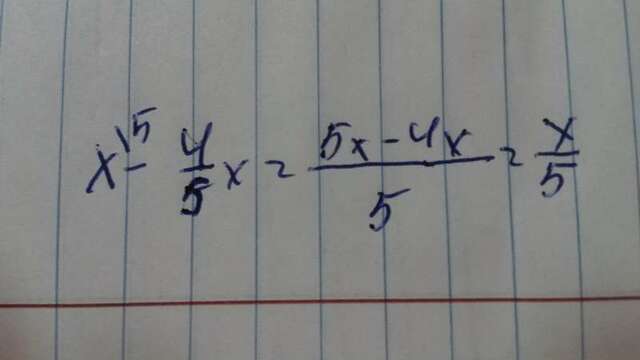 x^{\5} - 4/5 x = (5x - 4x)/5 = x/5